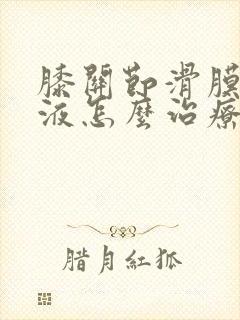 膝關節滑膜
液怎麼治療
腊月紅狐